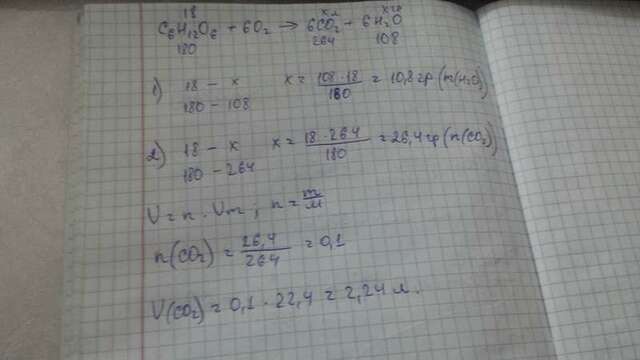 18 хл хгр
C₆H₁₂O₆ + 6O₂ → 6CO₂ + 6H₂O
180 264 108
1) 18 – x x = 108·18 / 180 = 10,8 гр (m(H₂O))
180 – 108
2) 18 – x x = 18·264 / 180 = 26,4 гр (n(CO₂))
180 – 264
V = n · Vm ; n = m/M
n(CO₂) = 26,4 / 264 = 0,1
V(CO₂) = 0,1 · 22,4 = 2,24 л.